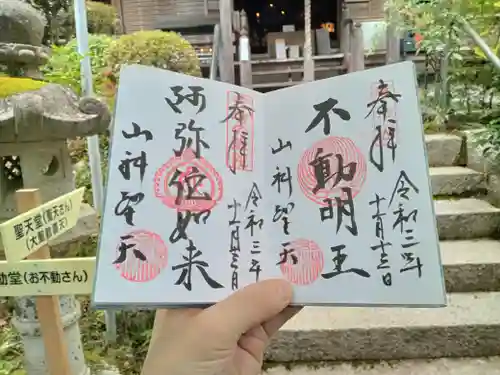 奉拝
不動明王
山科聖天
令和三年
十一月十三日
奉拝
阿弥陀如来
山科聖天
令和三年
十一月十三日
聖天堂(聖天さん)
(大聖歓喜天)
動堂(お不動さん)